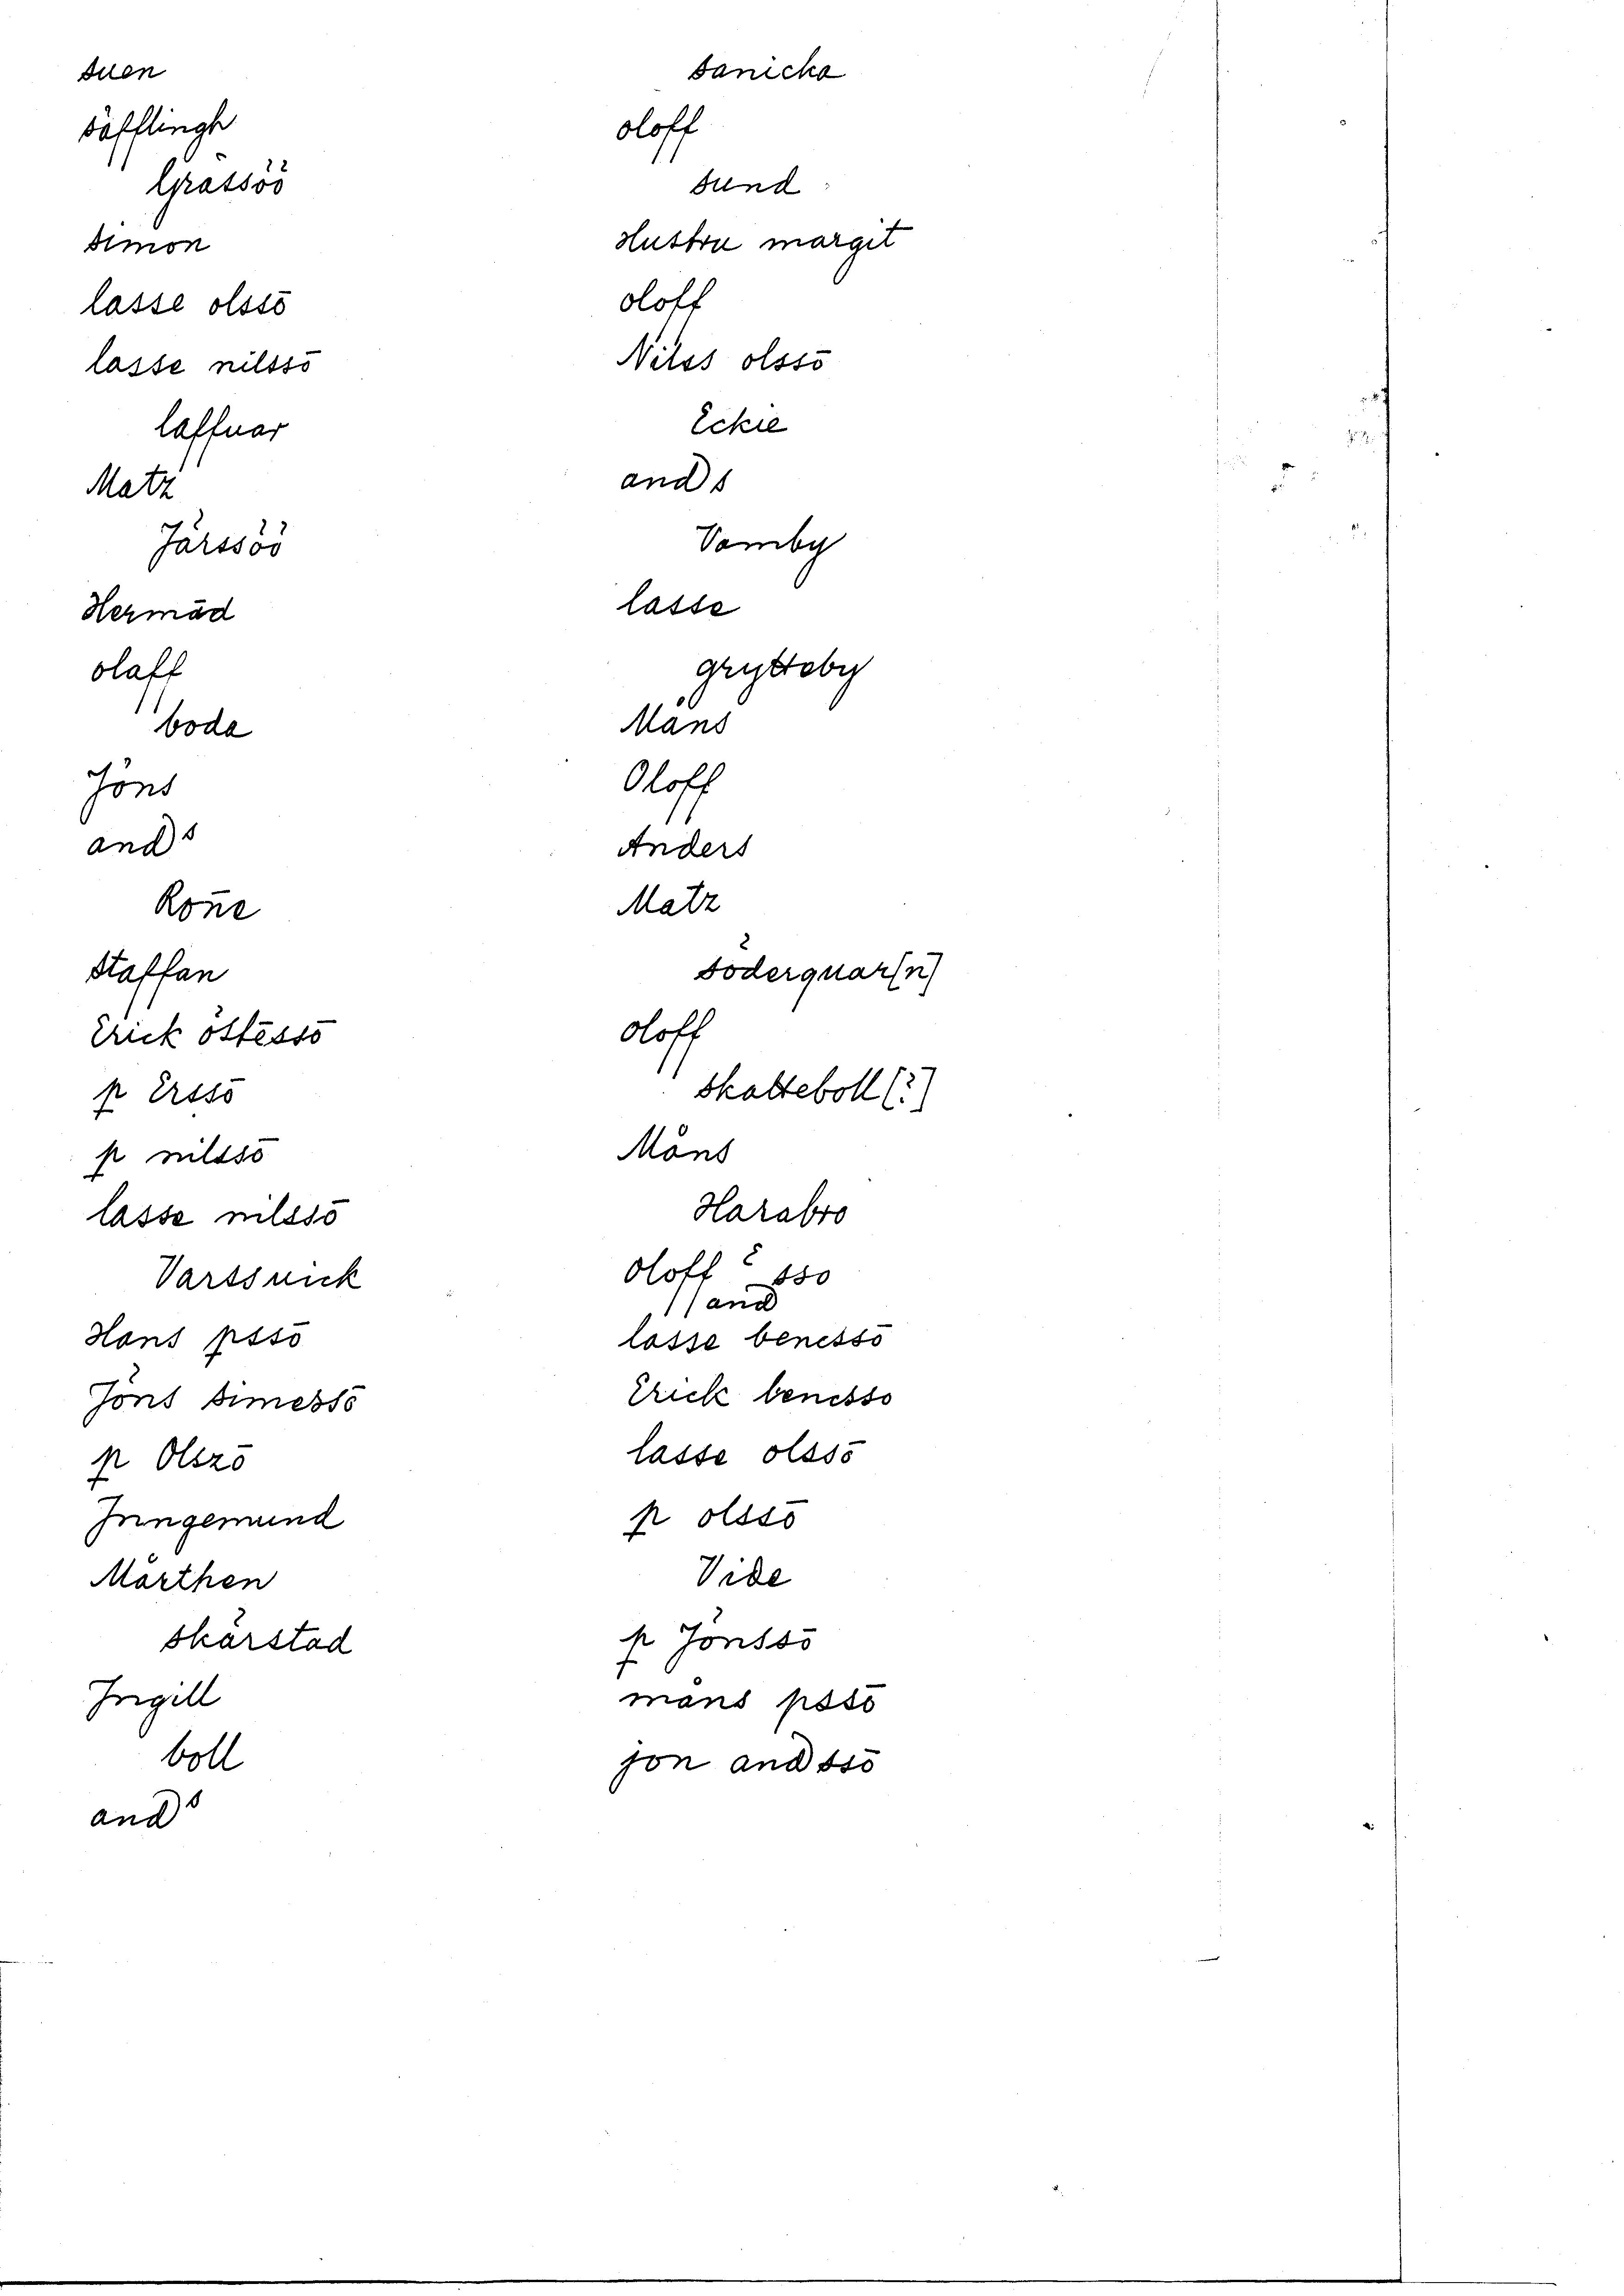 suen
söfflingh
Grässöö
simon
lasse olssō
lasse nilssō
laffuar
Matz
Järssöö
Hermād
olaff
boda
Jöns
and s
Rōne
Staffan
Erick östēssō
p Erssō
p nilssō
lasse nilssō
Varssuick
Hans pssō
Jöns simessō
p Olszō
Jnngemund
Mårthen
skärstad
Jngill
boll
and s
sanicka
oloff
sund
Hustru margit
oloff
Nilss olssō
Eckie
and s
Vamby
lasse
grytteby
Måns
Oloff
Anders
Matz
söderquar[n]
oloff
skatteboll [?]
Måns
Harabro
oloff sso
and
lasse benessō
Erick benesso
lasse olssō
p olssō
Vide
p Jönssō
måns pssō
jon and ssō